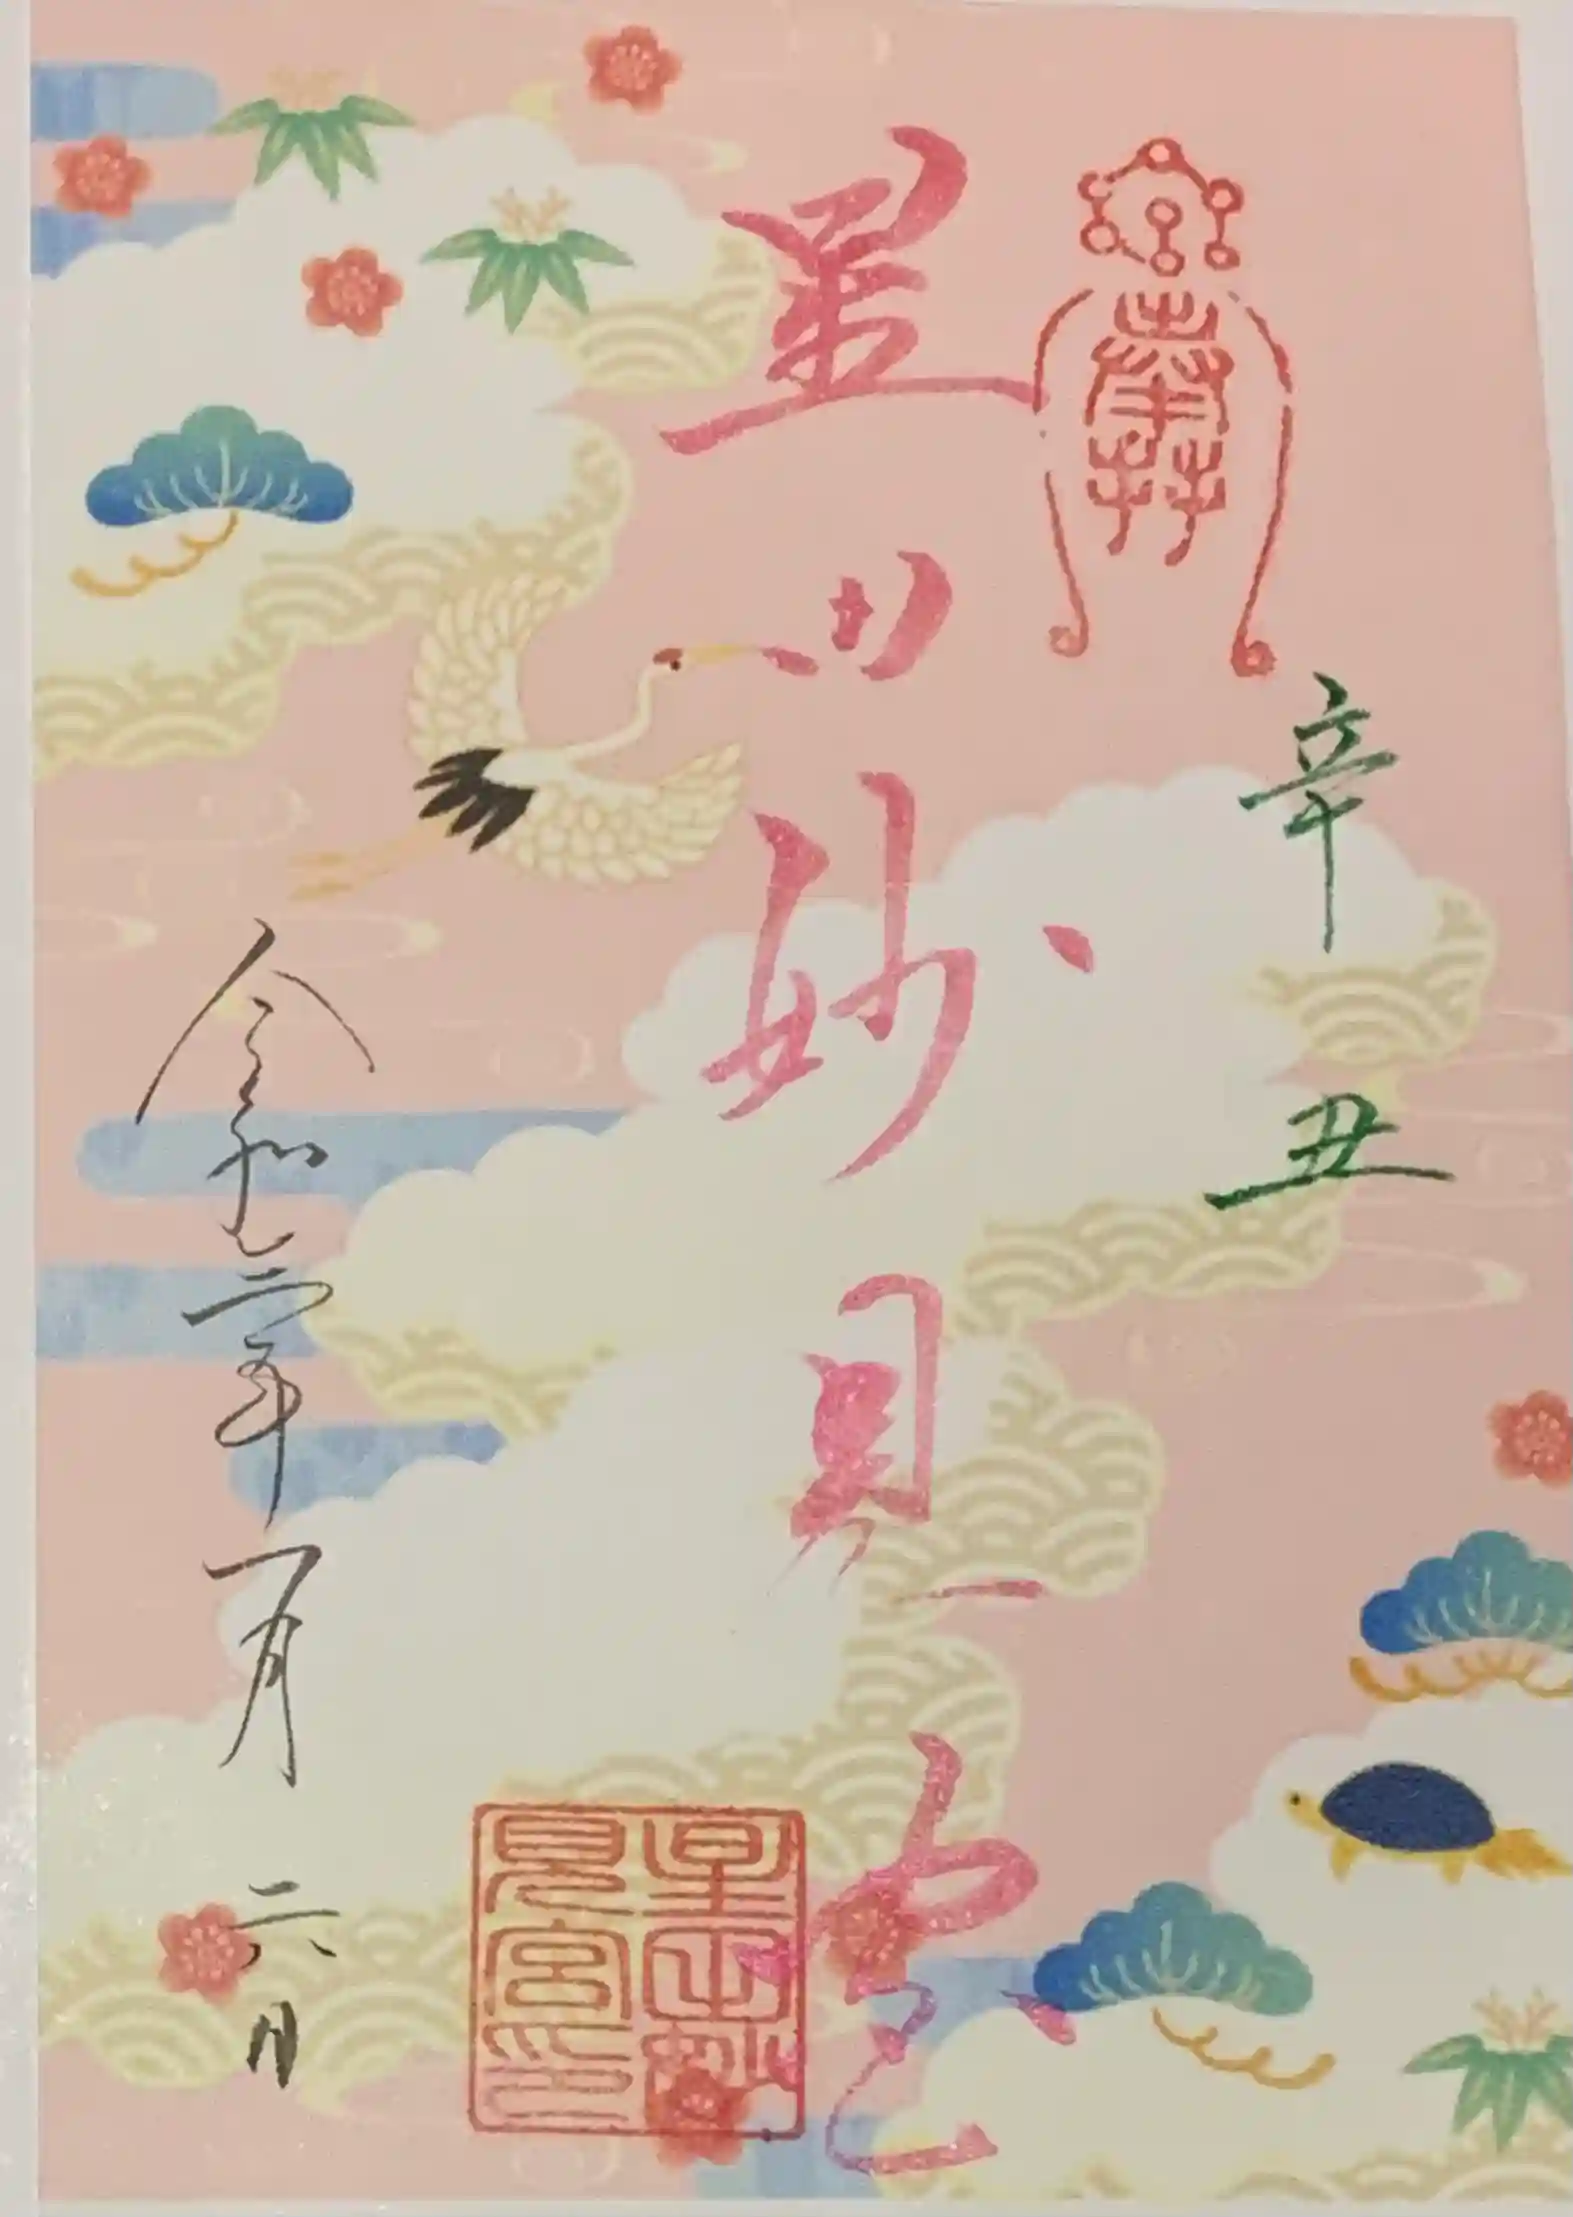 辛丑
星田妙見宮
星田妙
見宮印
令和三年一月六日